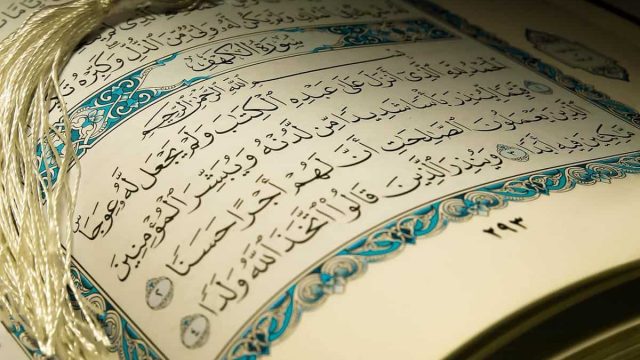 وَلِيٌّ مِّنَ ٱلذُّلِّ وَكَبِّرْهُ تَكْ
سُورَةُ الْكَهْفِ
بِسْمِ ٱللَّهِ ٱلرَّحْمَٰنِ ٱلرَّحِيمِ
ٱلْحَمْدُ لِلَّهِ ٱلَّذِىٓ أَنزَلَ عَلَىٰ عَبْدِهِ ٱلْكِتَٰبَ وَلَمْ يَجْعَل لَّهُۥ عِوَجَا ۜ
قَيِّمًا لِّيُنذِرَ بَأْسًا شَدِيدًا مِّن لَّدُنْهُ وَيُبَشِّرَ ٱلْمُؤْمِنِينَ
ٱلَّذِينَ يَعْمَلُونَ ٱلصَّٰلِحَٰتِ أَنَّ لَهُمْ أَجْرًا حَسَنًا ٢
مَّٰكِثِينَ فِيهِ أَبَدًا ٣ وَيُنذِرَ ٱلَّذِينَ قَالُوا۟ ٱتَّخَذَ ٱللَّهُ وَلَدًا ٤
٢٩٣